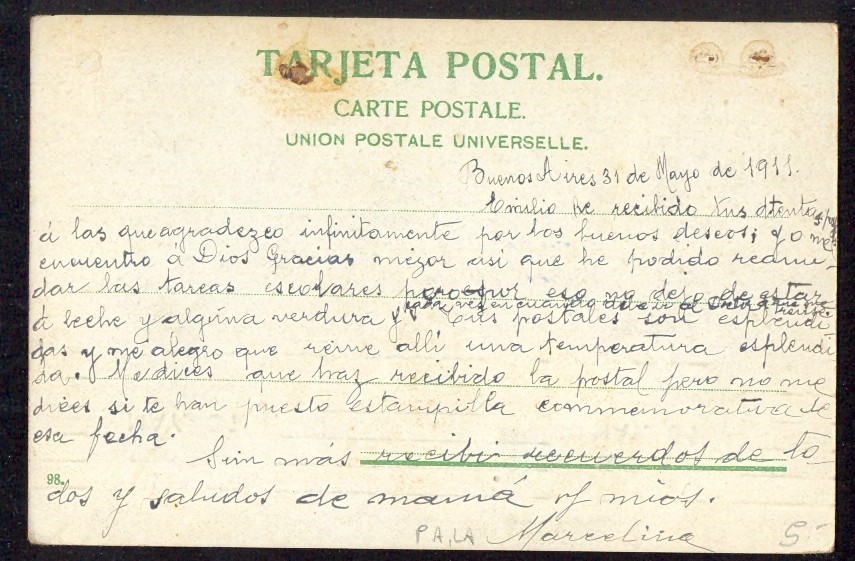 TARJETA POSTAL.
CARTE POSTALE.
UNION POSTALE UNIVERSELLE.
Buenos Aires 31 de Mayo de 1911.
Emilio he recibido tus atentas
á las que agradezco infinitamente por tos buenos deseos; yo me
encuentro á Dios Gracias mejor asi que he podido reanu-
dar las tareas escolares pero por eso no dejo de estar
á leche y algúna verdura y
tus postales son esplendi
das y me alegro que reine allí una temperatura esplendi
da. Me dices que haz recibido la postal pero no me
dices si te han puesto estampilla commemorativa de
esa fecha.
Sin más recibi recuerdos de to-
98.
dos y saludos de mamá y mios.
PA, LA Marcelina 5-